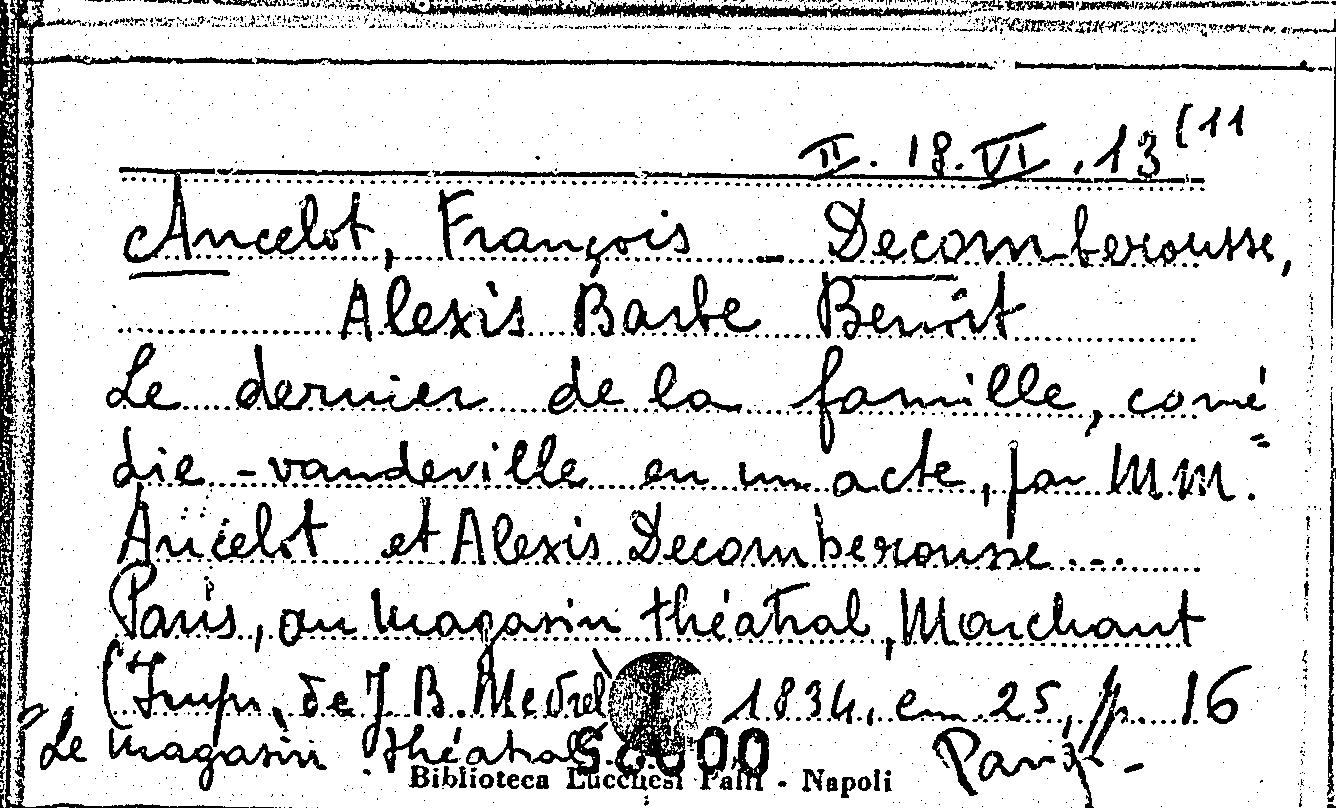 II. 18. VI. 13 (11
Ancelot, François - Decomberousse,
Alexis Barbe Benoît
Le dernier de la famille, comé
die-vaudeville en un acte, par MM.
Ancelot et Alexis Decomberousse...
Paris, au magasin théatral, Marchant
(Impr. de J. B. Mevrel 1834, cm 25, pp. 16
Le magasin théatral Paris -
Biblioteca Lucchesi Palli - Napoli